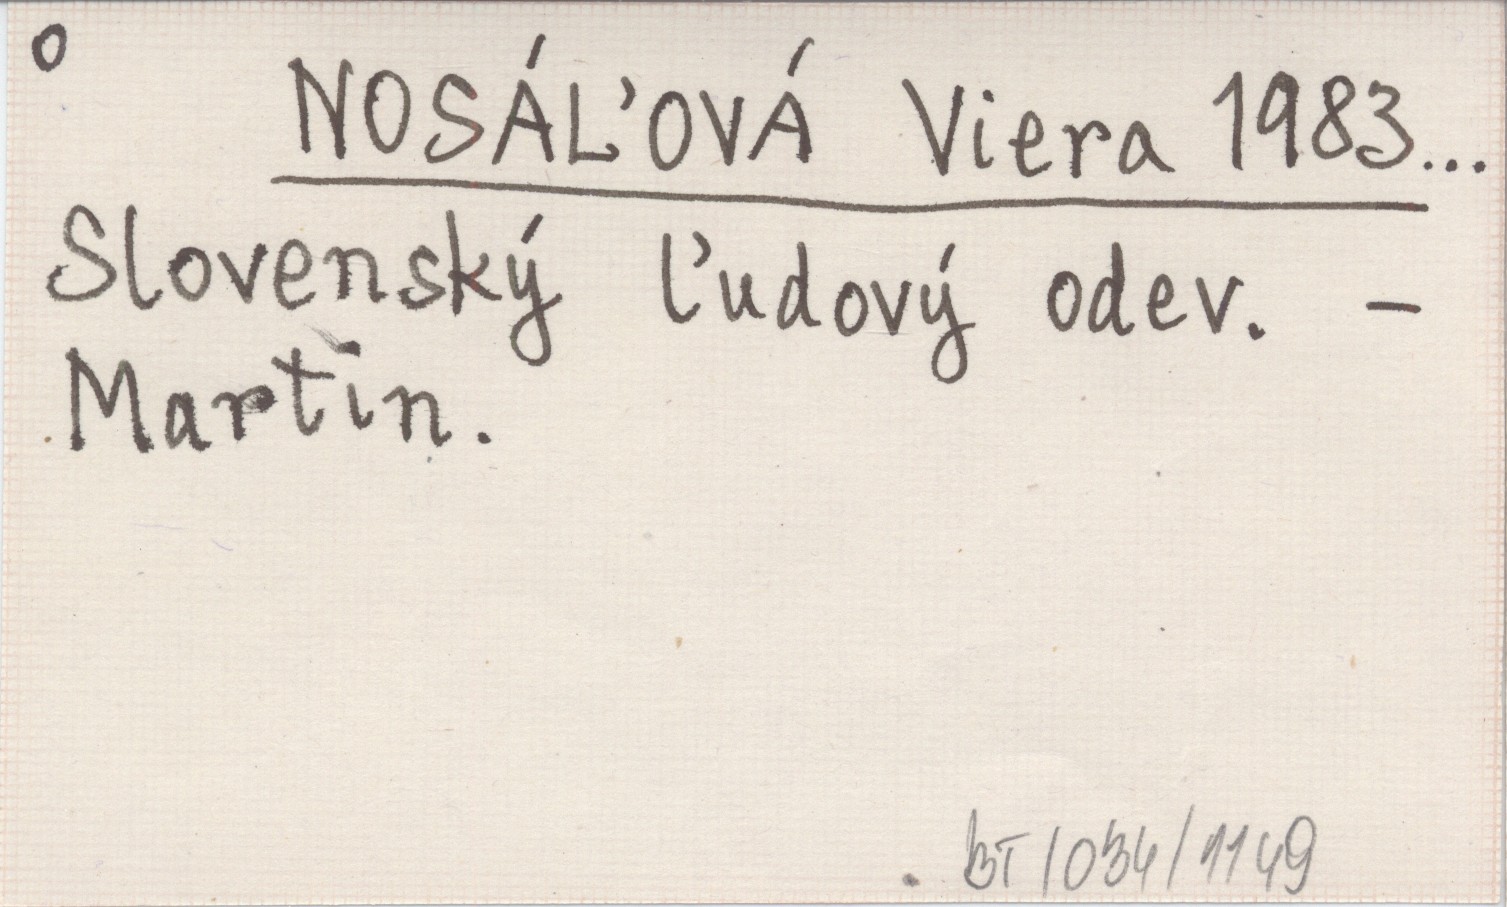 o
NOSÁĽOVÁ Viera 1983...
Slovenský ľudový odev. –
Martin.
BT/034/1149